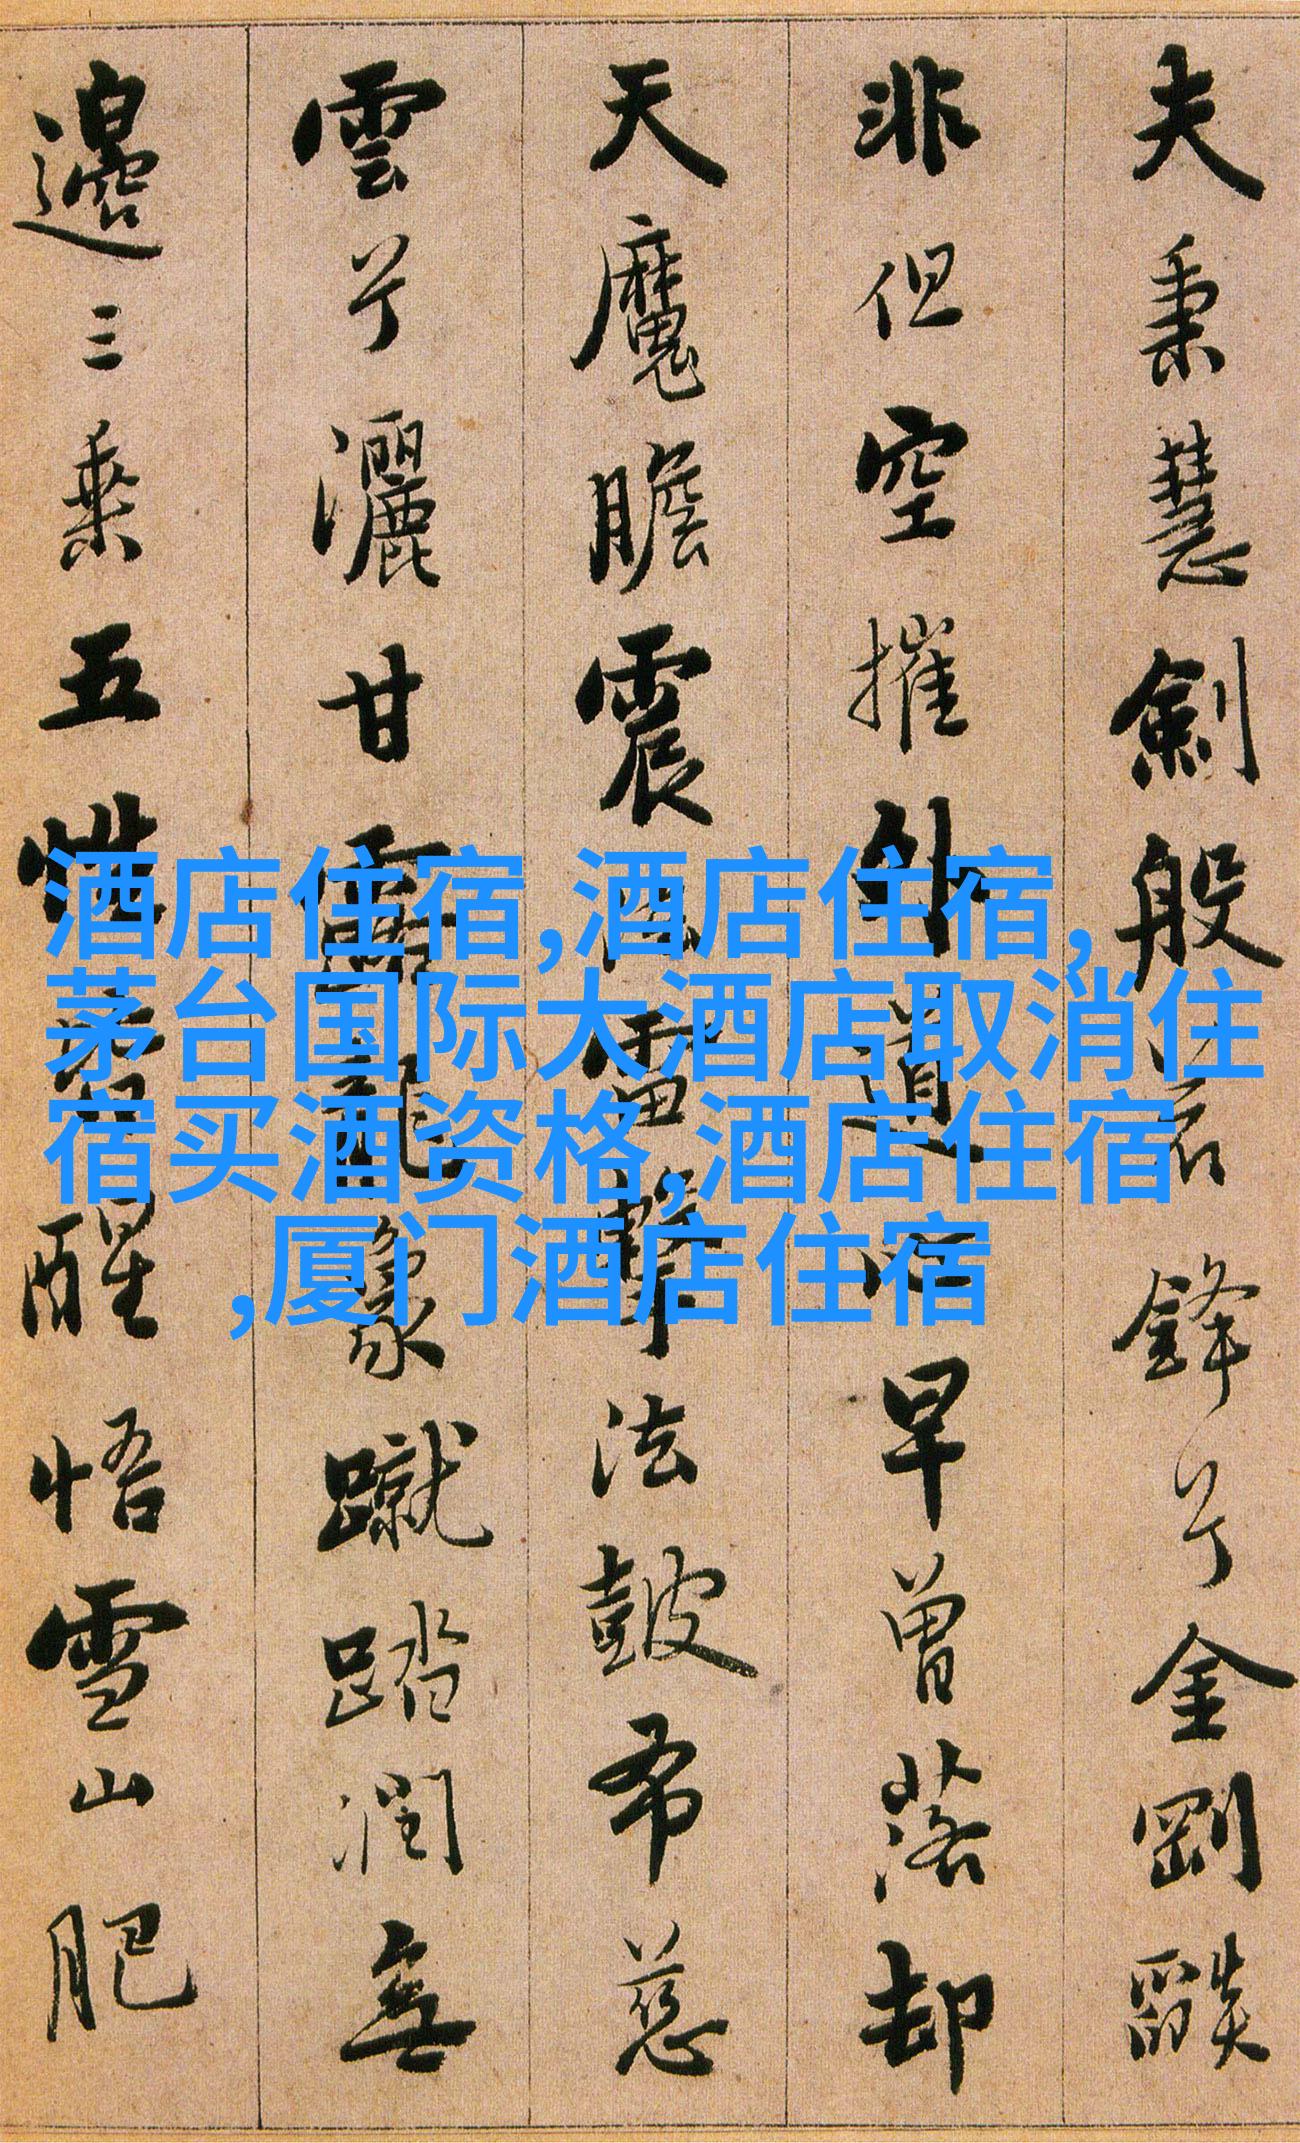 夫秉慧劍般若鋒兮金剛𦦨
非但空摧外道心早曾落却
天魔膽震法雷擊法鼓布慈
雲兮灑甘露龍象蹴踏潤無
邊三乘五性皆醒悟雪山肥
酒店住宿,酒店住宿,
茅台国际大酒店取消住
宿买酒资格,酒店住宿
,厦门酒店住宿